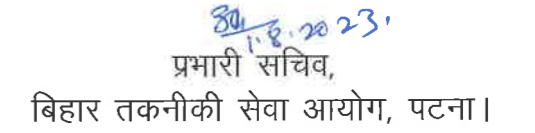 1.8.2023.
प्रभारी सचिव,
बिहार तकनीकी सेवा आयोग, पटना।